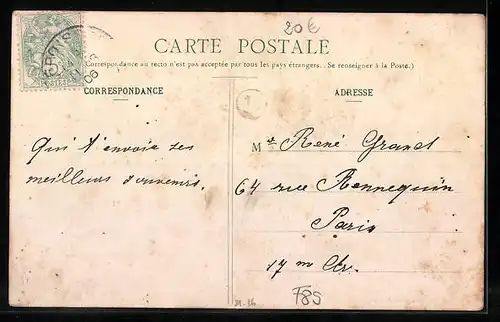 20€
CARTE POSTALE
(Correspondance au recto n'est pas acceptée par tous les pays étrangers. Se renseigner à la Poste.)
CORRESPONDANCE
ADRESSE
1
Qui t'envoie ses
meilleurs souvenirs.
Mr René Granet
64 rue Rennequin
Paris
17 me Ar.
F85